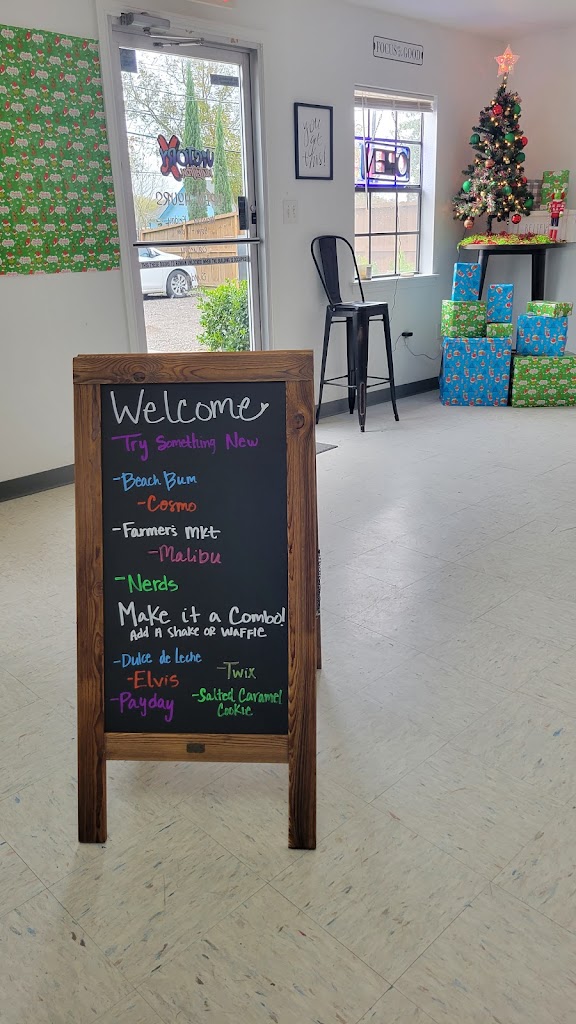 FOCUS on the GOOD
you got this!
OPEN
HOURS
Welcome
Try Something New
-Beach Bum
-Cosmo
-Farmer's mkt
-Malibu
-Nerds
Make it a Combo!
Add A Shake or Waffle
-Dulce de Leche
-Twix
-Elvis
-Payday
-Salted Caramel
Cookie